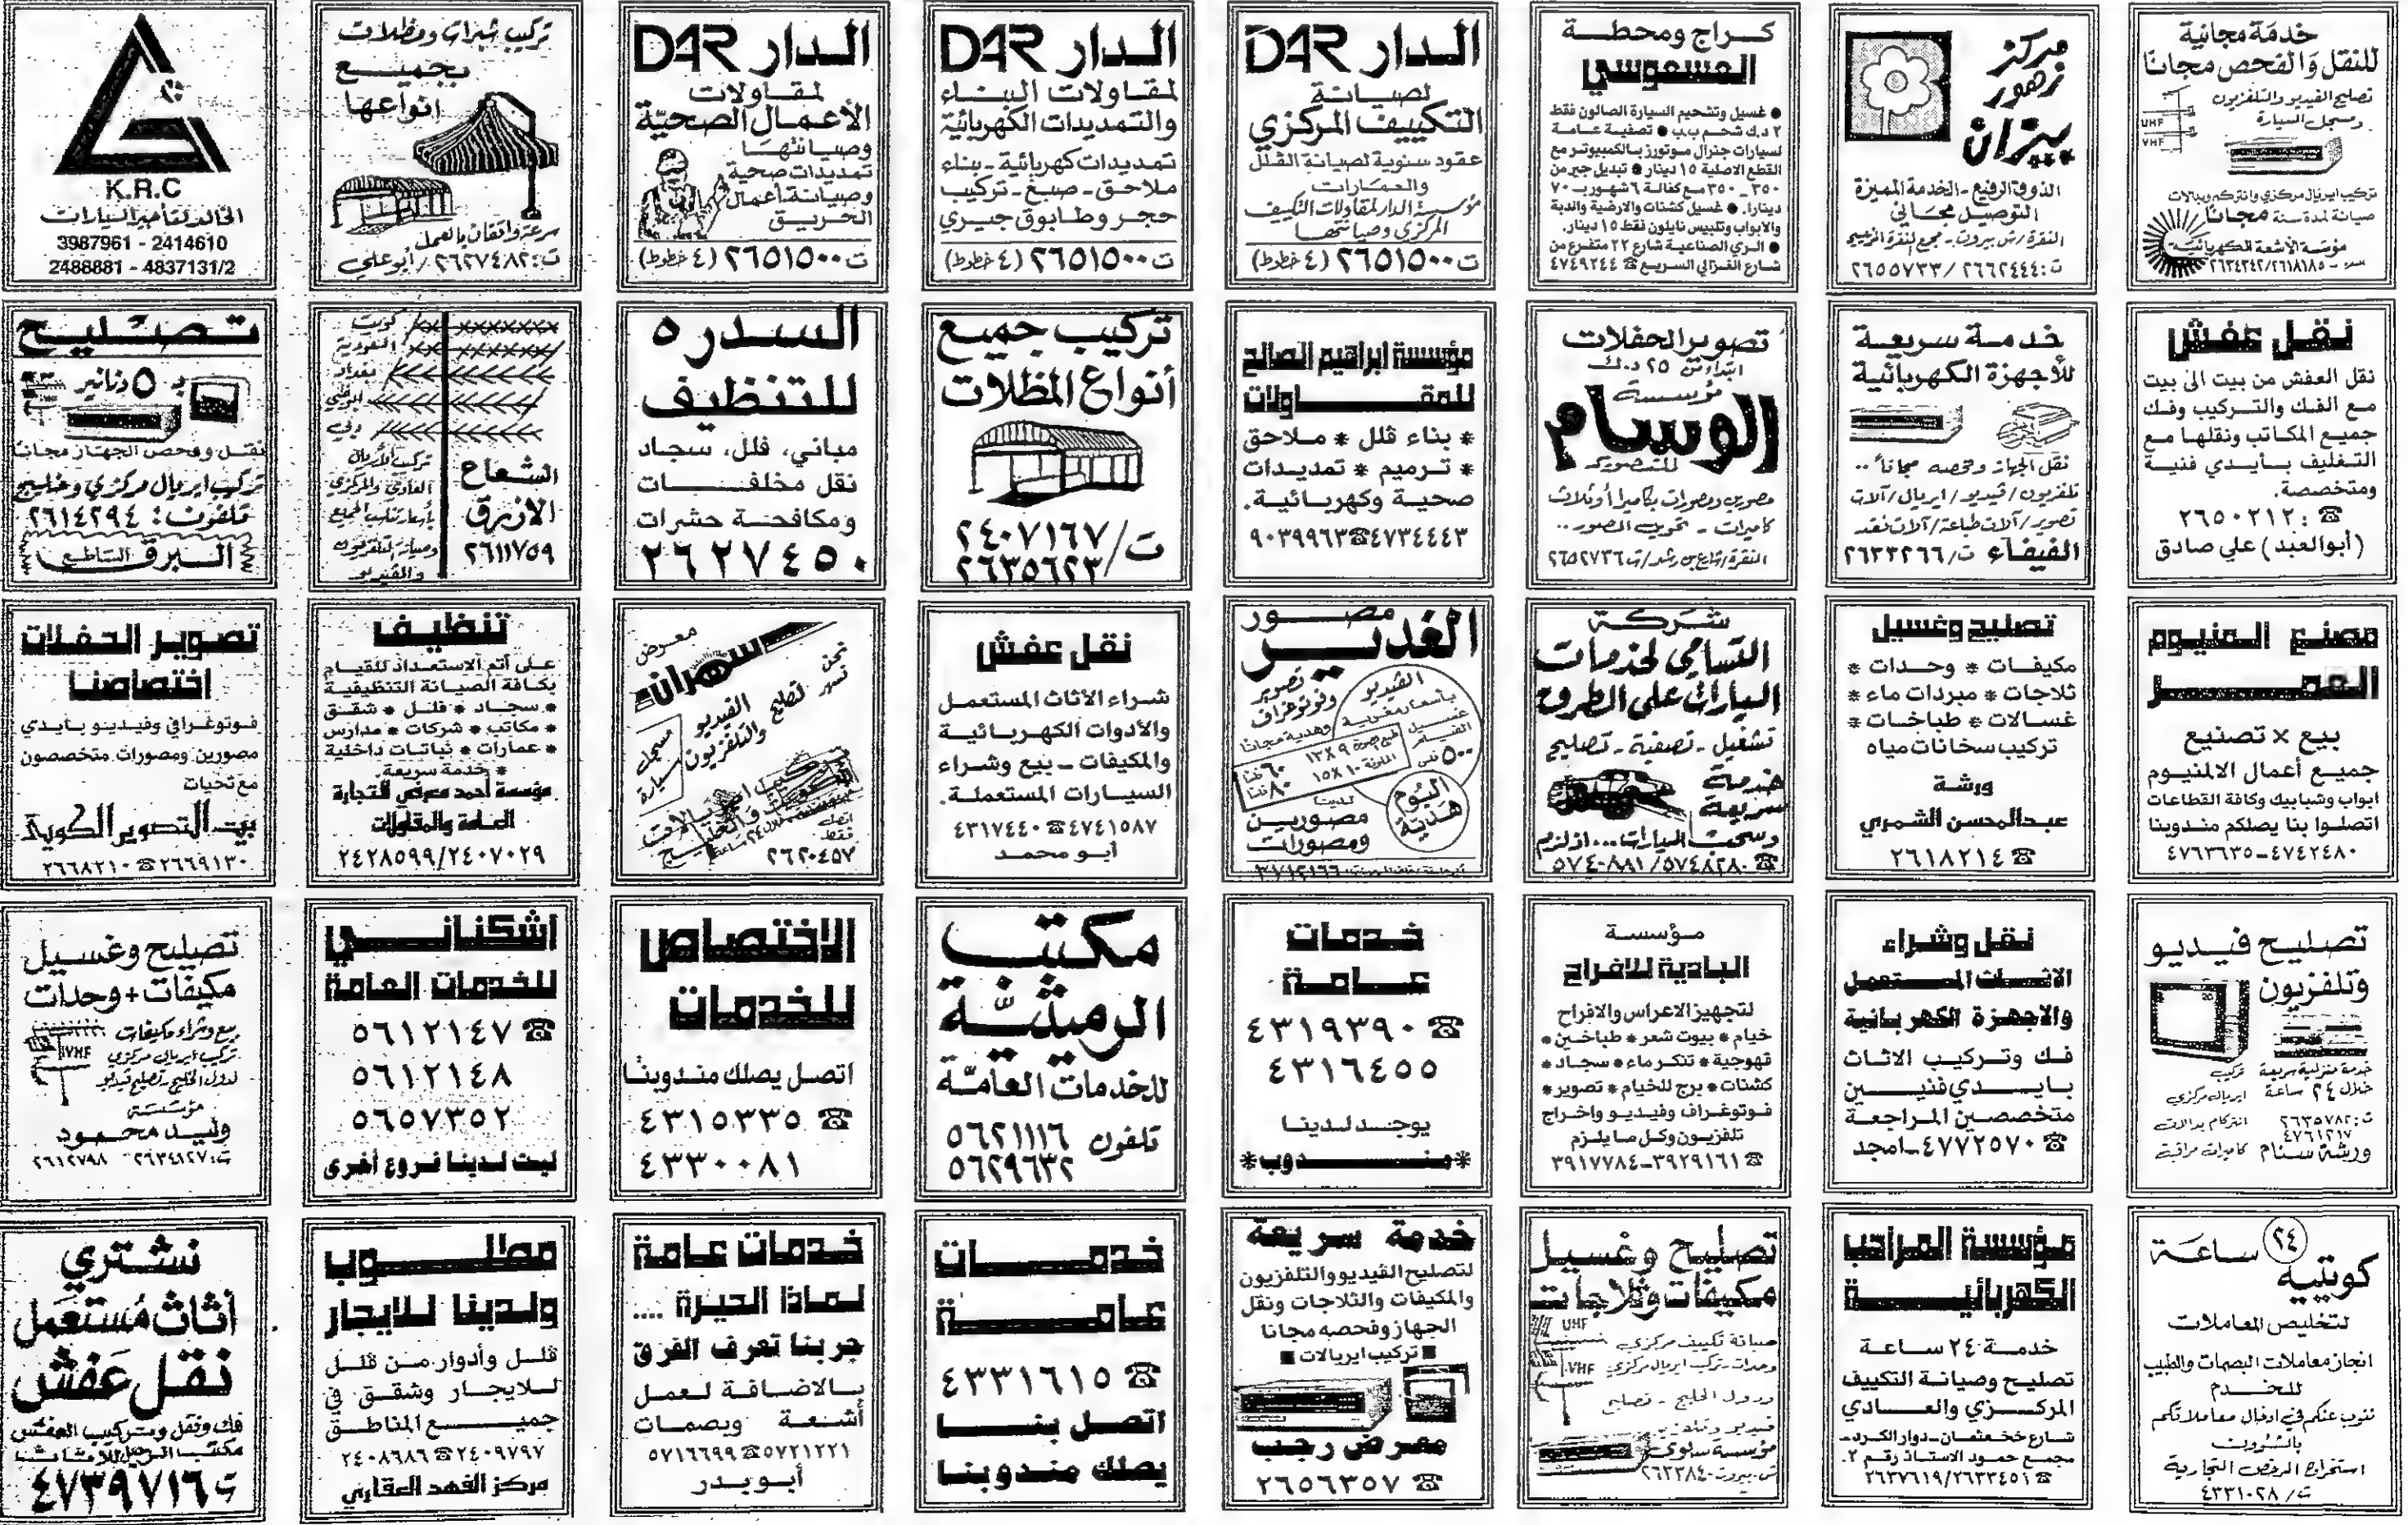 خدمة مجانية
للنقل والفحص مجانًا
تصليح الفيديو والتلفزيون
ومسجل السيارة
UHF
VHF
تركيب ايريال مركزي وانتركم وبدالات
صيانة لمدة سنة مجانًا
مؤسسة الأشعة الكهربائية
٢٦٣٤٢٤٢/٢٦١٨١٨٥
مركز
زهور
بيزان
الذوق الرفيع - الخدمة المميزة
التوصيل مجاني
ت: ٢٦٦٢٤٤٤ / ٢٦٥٥٧٣٣
كراج ومحطة
العسعوسي
● غسيل وتشحيم السيارة الصالون فقط
٢ د.ك شحم ب.ب ● تصفية عامة
لسيارات جنرال موتورز بالكمبيوتر مع
القطع الاصلية ١٥ دينار ● تبديل جير من
٣٥٠ - ٣٥٠ مع كفالة ٦ شهور بـ ٧٠
دينارا. ● غسيل كشنات والارضية والدبة
والابواب وتلبيس نايلون فقط ١٥ دينار.
● الري الصناعية شارع ٢٢ متفرع من
شارع الغزالي السريع ☎ ٤٧٤٩٢٤٤
الدار DAR
لصيانة
التكييف المركزي
عقود سنوية لصيانة الفلل
والعمارات
مؤسسة الدار لمقاولات التكييف
المركزي وصيانتها
ت ٢٦٥١٥٠٠ (٤ خطوط)
الدار DAR
لمقاولات البناء
والتمديدات الكهربائية
تمديدات كهربائية - بناء
ملاحق - صبغ - تركيب
حجر وطابوق جيري
ت ٢٦٥١٥٠٠ (٤ خطوط)
الدار DAR
لمقاولات
الأعمال الصحية
وصيانتها
تمديدات صحية
وصيانة أعمال
الحريق
ت ٢٦٥١٥٠٠ (٤ خطوط)
تركيب شبرات ومظلات
بجميع
انواعها
سرعة واتقان بالعمل
ت: ٢٦٢٧٤٨٢ / أبو علي
K.R.C
الخالد لتأجير السيارات
3987961 - 2414610
2488881 - 4837131/2
نقل عفش
نقل العفش من بيت الى بيت
مع الفك والتركيب وفك
جميع المكاتب ونقلها مع
التغليف بأيدي فنية
ومتخصصة.
☎ : ٢٦٥٠٢١٢
(أبو العبد) علي صادق
خدمة سريعة
للأجهزة الكهربائية
نقل الجهاز وفحصه مجاناً ..
تلفزيون / فيديو / ايريال / آلات
تصوير / آلات طباعة / آلات نقد
الفيفاء ت/ ٢٦٣٣٢٦٦
تصوير الحفلات
ابتداء من ٢٥ د.ك
مؤسسة
الوسام
للتصوير
مصورين ومصورات بكاميرا أو ثلاث
كاميرات - تحويل الصور ..
النقرة / شارع بن رشد / ت ٢٦٥٢٧٣٦
مؤسسة ابراهيم الصالح
للمقاولات
* بناء فلل * ملاحق
* ترميم * تمديدات
صحية وكهربائية.
٤٧٣٤٤٤٣ ☎ ٩٠٣٩٩٦٣
تركيب جميع
أنواع المظلات
ت/ ٢٤٠٧١٦٧
٢٦٣٥٦٢٣
السدره
للتنظيف
مباني، فلل، سجاد
نقل مخلفات
ومكافحة حشرات
٢٦٢٧٤٥٠
كويت
السعودية
بغداد
ابوظبي
دبي
الشعاع
الازرق
٢٦١١٧٥٩
تركيب الأريال
العادي والمركزي
بأسعار تناسب الجميع
وصيانة التلفزيون
والفيديو
تصليح
بـ ٥ دنانير
نقل وفحص الجهاز مجانا
تركيب ايريال مركزي وخليج
تلفون: ٢٦١٤٢٩٤
البرق الساطع
مصنع المنيوم
العمر
بيع × تصنيع
جميع أعمال الالمنيوم
ابواب وشبابيك وكافة القطاعات
اتصلوا بنا يصلكم مندوبنا
٤٧٤٢٤٨٠ - ٤٧٦٣٦٣٥
تصليح وغسيل
مكيفات * وحدات *
ثلاجات * مبردات ماء *
غسالات * طباخات *
تركيب سخانات مياه
ورشة
عبدالمحسن الشمري
☎ ٢٦١٨٢١٤
شركة
التسامي لخدمات
السيارات على الطرق
تشغيل - تصفية - تصليح
خدمة
سريعة
وسحب السيارات... اذ لزم
☎ ٥٧٤٨٢٨٠ / ٥٧٤٠٨٨١
مصور
الغدير
تصوير
وفوتوغراف
الفيديو
بأسعار مغرية
وهدية مجانا
غسيل
الفيلم
٥٠٠ فلس
١٣X٩ ٦٠ فلسا
١٥X١٠ ٨٠ فلسا
البوم
هدية
لدينا
مصورين
ومصورات
نقل عفش
شراء الأثاث المستعمل
والأدوات الكهربائية
والمكيفات - بيع وشراء
السيارات المستعملة.
٤٧٤١٥٨٧ ☎ ٤٣١٧٤٤٠
أبو محمد
معرض
سهران
نحن
تصليح الفيديو
والتلفزيون
مسجل
سيارة
اتصل
فقط
٢٦٢٠٤٥٧
تنظيف
على أتم الاستعداد للقيام
بكافة الصيانة التنظيفية
* سجاد * فلل * شقق
* مكاتب * شركات * مدارس
* عمارات * نباتات داخلية
* خدمة سريعة.
مؤسسة أحمد معرفي للتجارة
العامة والمقاولات
٢٤٢٨٥٩٩/٢٤٠٧٠٢٩
تصوير الحفلات
اختصاصنا
فوتوغرافي وفيديو بأيدي
مصورين ومصورات متخصصون
مع تحيات
بيت التصوير الكويتي
٢٦٦٩١٣٠ ☎ ٢٦٦٨٢١٠
تصليح فيديو
وتلفزيون
خدمة منزلية سريعة
خلال ٢٤ ساعة
ت: ٢٦٣٥٧٨٢
٤٧٦١٢١٧
ورشة سنام
تركيب
ايريال مركزي
انتركام بدالات
كاميرات مراقبة
نقل وشراء
الاثاث المستعمل
والاجهزة الكهربائية
فك وتركيب الاثاث
بايدي فنيين
متخصصين المراجعة
☎ ٤٧٧٢٥٧٠ - امجد
مؤسسة
البادية للافراح
لتجهيز الاعراس والافراح
خيام * بيوت شعر * طباخين *
قهوجية * تنكر ماء * سجاد *
كشنات * برج للخيام * تصوير *
فوتوغراف وفيديو واخراج
تلفزيون وكل ما يلزم
☎ ٣٩٢٩١٦١ - ٣٩١٧٧٨٤
خدمات
عامة
☎ ٤٣١٩٣٩٠
٤٣١٦٤٥٥
يوجد لدينا
* مندوب *
مكتب
الرميثية
للخدمات العامة
تلفون ٥٦٢١١١٦
٥٦٢٩٦٣٢
الاختصاص
للخدمات
اتصل يصلك مندوبنا
☎ ٤٣١٥٣٣٥
٤٣٣٠٠٨١
اشكناني
للخدمات العامة
☎ ٥٦١٢١٤٧
٥٦١٢١٤٨
٥٦٥٧٣٥٢
ليت لدينا فروع أخرى
تصليح وغسيل
مكيفات + وحدات
بيع وشراء مكيفات
تركيب ايريال مركزي
لدول الخليج - تصليح فيديو
VHF
مؤسسة
وليد محمود
ت: ٢٦٣٤١٢٧ - ٢٦١٢٧٩٨
٢٤ ساعة
كويتية
لتخليص المعاملات
انجاز معاملات البصمات والطبيب
للخدم
ننوب عنكم في ادخال معاملاتكم
بالشؤون
استخراج الرخص التجارية
ت/ ٤٣٣١٠٢٨
مؤسسة المراحب
الكهربائية
خدمة ٢٤ ساعة
تصليح وصيانة التكييف
المركزي والعادي
شارع خغعثمان - دوار الكرد -
مجمع حمود الاستاذ رقم ٢.
☎ ٢٦٣٣٤٥١/٢٦٣٧٦١٩
تصليح وغسيل
مكيفات وثلاجات
UHF
VHF
صيانة تكييف مركزي
وحدات - تركيب ايريال مركزي
ودول الخليج - تصليح
فيديو وتلفزيون
مؤسسة سلوى
ش. بيروت ٢٦٢٣٨٤٠
خدمة سريعة
لتصليح الفيديو والتلفزيون
والمكيفات والثلاجات ونقل
الجهاز وفحصه مجانا
■ تركيب ايريالات ■
معرض رجب
☎ ٢٦٥٦٣٥٧
خدمات
عامة
☎ ٤٣٣١٦١٥
اتصل بنا
يصلك مندوبنا
خدمات عامة
لماذا الحيرة ....
جربنا تعرف الفرق
بالاضافة لعمل
أشعة وبصمات
٥٧٢١٢٢١ ☎ ٥٧١٦٦٩٩
أبو بدر
مطلوب
ولدينا للايجار
فلل وأدوار من فلل
للايجار وشقق في
جميع المناطق
٢٤٠٩٧٩٧ ☎ ٢٤٠٨٦٨٦
مركز الفهد العقاري
نشتري
أثاث مستعمل
نقل عفش
فك ونقل وتركيب العفش
ت ٤٧٣٩٧١٦